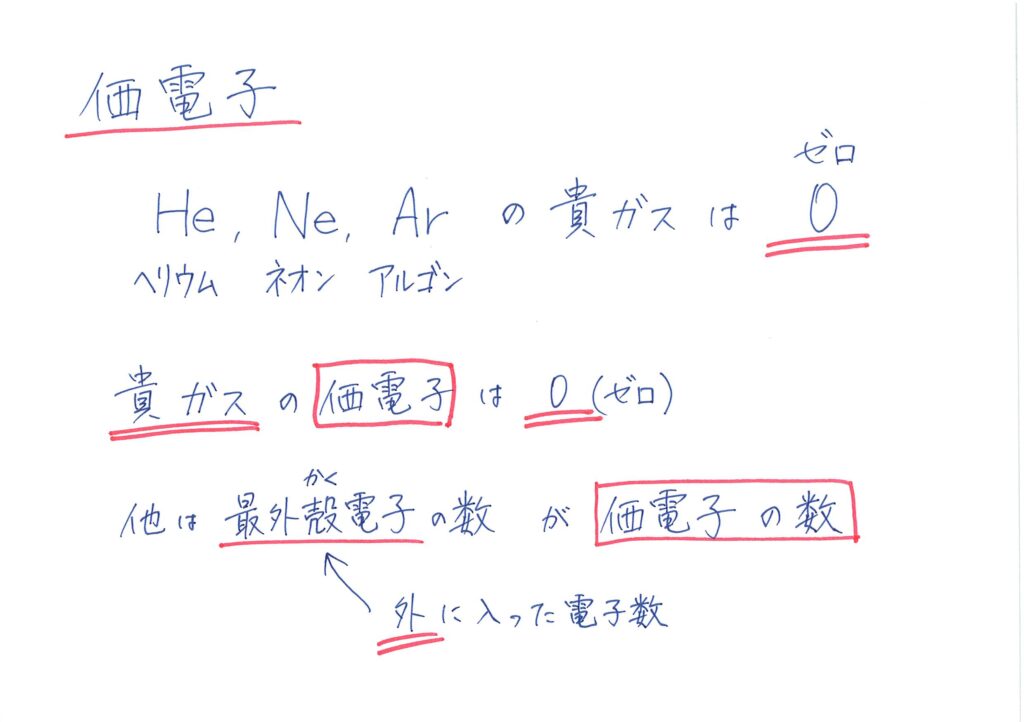 価電子
ゼロ
He, Ne, Ar の貴ガスは 0
ヘリウム ネオン アルゴン
貴ガスの価電子は 0(ゼロ)
かく
他は最外殻電子の数が価電子の数
外に入った電子数